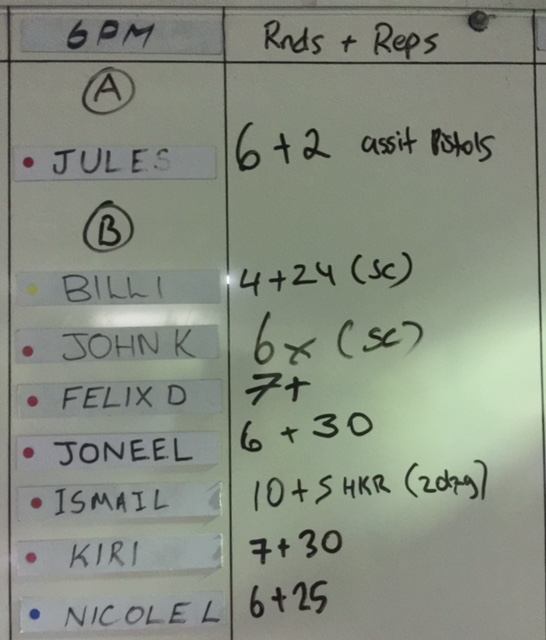 6PM Rnds + Reps
A
JULES 6+2 assit Pistols
B
BILLI 4+24 (SC)
JOHN K 6x (SC)
FELIX D 7+
JONEEL 6 + 30
ISMAIL 10+5 HKR
KIRI 7+30
NICOLE L 6+25